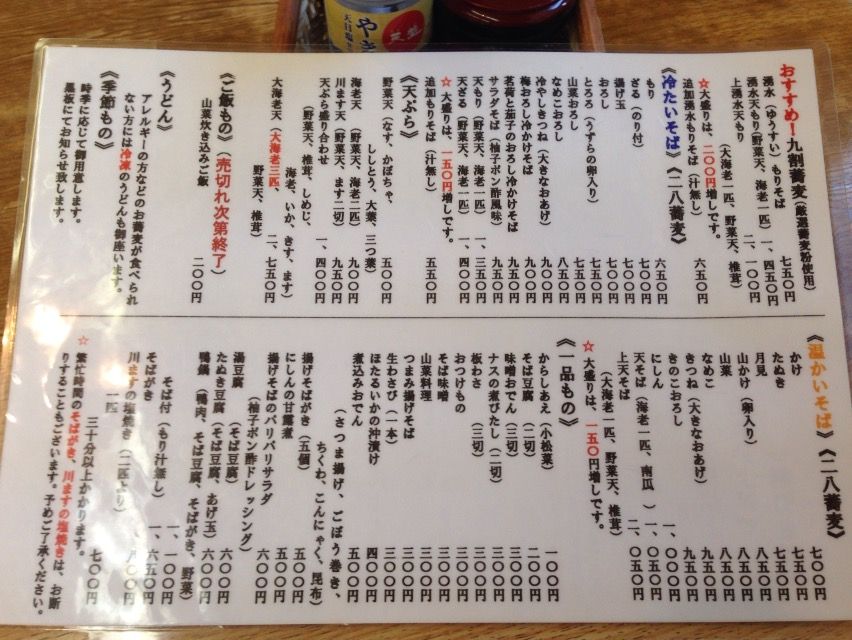 やき
天日塩
おすすめ!九割蕎麦(厳選蕎麦粉使用)
湧水(ゆうすい)もりそば 七五〇円
湧水天もり(野菜天、海老一匹) 一、四五〇円
上湧水天もり(大海老一匹、野菜天、椎茸) 二、一〇〇円
☆大盛りは、二〇〇円増しです。
追加湧水もりそば(汁無し) 六五〇円
《冷たいそば》《二八蕎麦》
もり 六五〇円
ざる(のり付) 七〇〇円
おろし 七〇〇円
揚げ玉 七〇〇円
とろろ(うずらの卵入り) 七五〇円
山菜おろし 七五〇円
なめこおろし 八五〇円
冷やしきつね(大きなおあげ) 九〇〇円
梅おろし冷かけそば 九〇〇円
茗荷と茄子のおろし冷かけそば 九五〇円
サラダそば(柚子ポン酢風味) 九五〇円
天もり(野菜天、海老一匹) 一、三五〇円
天ざる(野菜天、海老一匹) 一、四〇〇円
☆大盛りは、一五〇円増しです。
追加もりそば(汁無し) 五五〇円
《天ぷら》
野菜天(なす、かぼちゃ、
ししとう、大葉、三つ葉) 五〇〇円
海老天(野菜天、海老二匹) 九〇〇円
川ます天(野菜天、ます二切) 九五〇円
天ぷら盛り合わせ 一、四〇〇円
(野菜天、椎茸、しめじ、
海老、いか、きす、ます)
大海老天(大海老三匹、 二、七五〇円
野菜天、椎茸)
《ご飯もの》(売切れ次第終了)
山菜炊き込みご飯 二〇〇円
《うどん》
アレルギーの方などのお蕎麦が食べられ
ない方には冷凍のうどんも御座います。
《季節もの》
時季に応じて御用意します。
黒板にてお知らせ致します。
《温かいそば》《二八蕎麦》
かけ 七〇〇円
たぬき 七五〇円
月見 七五〇円
山かけ(卵入り) 八五〇円
山菜 八五〇円
なめこ 八五〇円
きつね(大きなおあげ) 九五〇円
きのこおろし 九五〇円
にしん 一、〇〇〇円
天そば(海老一匹、南瓜) 一、〇五〇円
上天そば 二、〇五〇円
(大海老一匹、野菜天、椎茸)
☆大盛りは、一五〇円増しです。
《一品もの》
からしあえ(小松菜) 一〇〇円
そば豆腐(三切) 二〇〇円
味噌おでん(三切) 三〇〇円
ナスの煮びたし(二切) 三〇〇円
板わさ(三切) 三〇〇円
おつけもの 三〇〇円
そば味噌 三〇〇円
山菜料理 三〇〇円
つまみ揚げそば 三〇〇円
生わさび(一本) 三〇〇円
ほたるいかの沖漬け 四〇〇円
煮込みおでん 五〇〇円
(さつま揚げ、ごぼう巻き、
ちくわ、こんにゃく、昆布)
揚げそばがき(五個) 五〇〇円
にしんの甘露煮 五〇〇円
揚げそばのバリバリサラダ 六〇〇円
(柚子ポン酢ドレッシング)
湯豆腐(そば豆腐) 六〇〇円
たぬき豆腐(そば豆腐、あげ玉) 六〇〇円
鴨鍋(鴨肉、そば豆腐、そばがき、野菜) 一、一〇〇円
そば付(もり汁無し) 一、六五〇円
そばがき 八〇〇円
川ますの塩焼き(二匹より)
一匹 七〇〇円
三十分以上かかります。
☆繁忙時間のそばがき、川ますの塩焼きは、お断
りすることもございます。予めご了承ください。